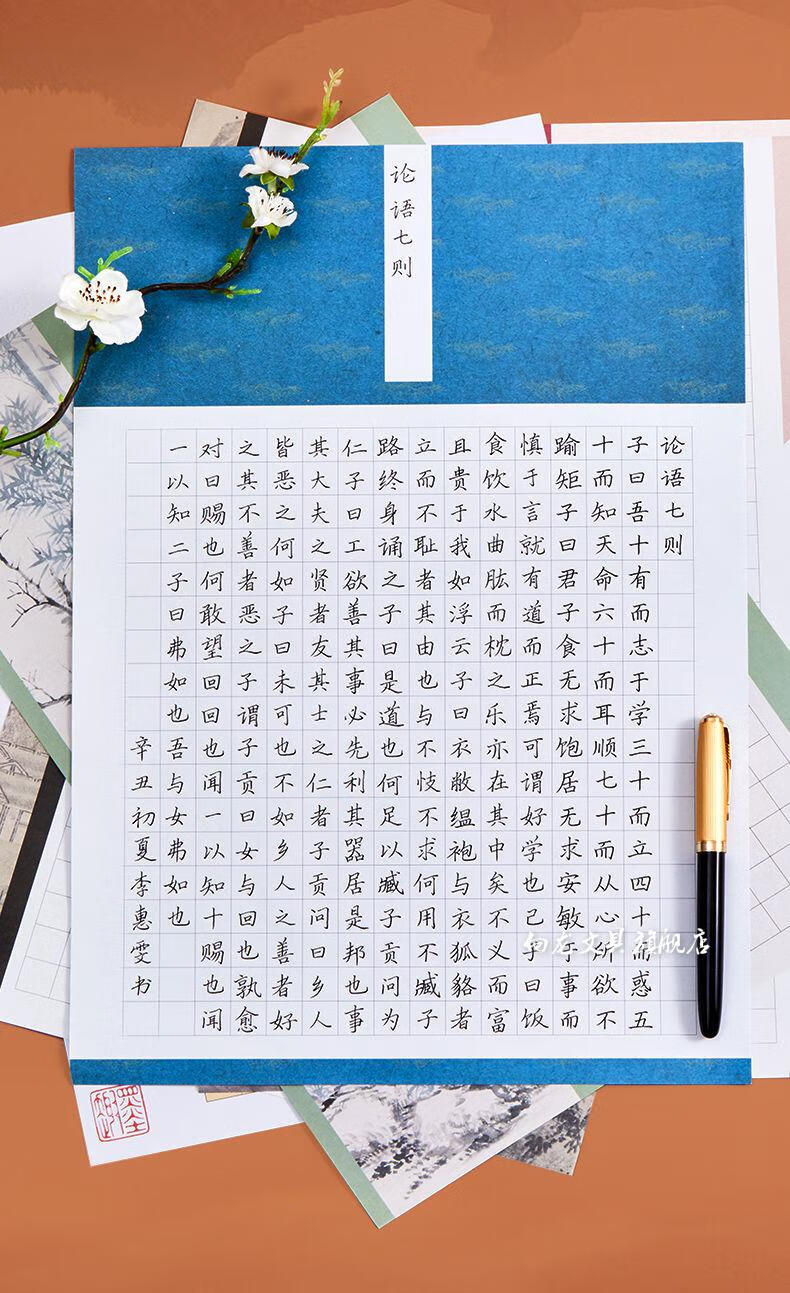 论语七则
论语七则
子曰吾十有而志于学三十而立四十而惑五
十而知天命六十而耳顺七十而从心所欲不
踰矩子曰君子食无求饱居无求安敏于事而
慎于言就有道而正焉可谓好学也已子曰饭
食饮水曲肱而枕之乐亦在其中矣不义而富
且贵于我如浮云子曰衣敝缊袍与衣狐貉者
立而不耻者其由也与不忮不求何用不臧子
路终身诵之子曰是道也何足以臧子贡问为
仁子曰工欲善其事必先利其器居是邦也事
其大夫之贤者友其士之仁者子贡问曰乡人
皆恶之何如子曰未可也不如乡人之善者好
之其不善者恶之子谓子贡曰女与回也孰愈
对曰赐也何敢望回回也闻一以知十赐也闻
一以知二子曰弗如也吾与女弗如也
辛丑初夏李惠雯书
文具旗舰店